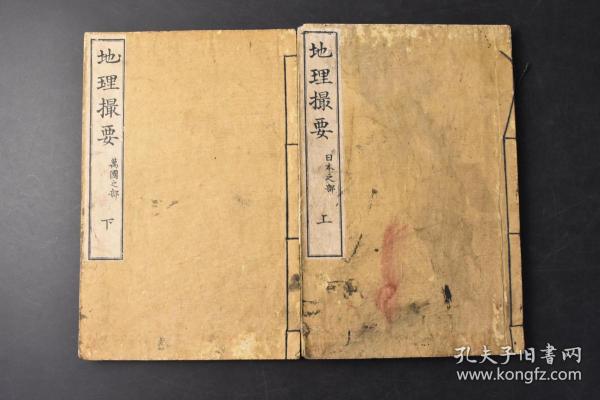 地理撮要
日本之部
上
地理撮要
萬國之部
下
孔夫子旧書网
www.kongfz.com